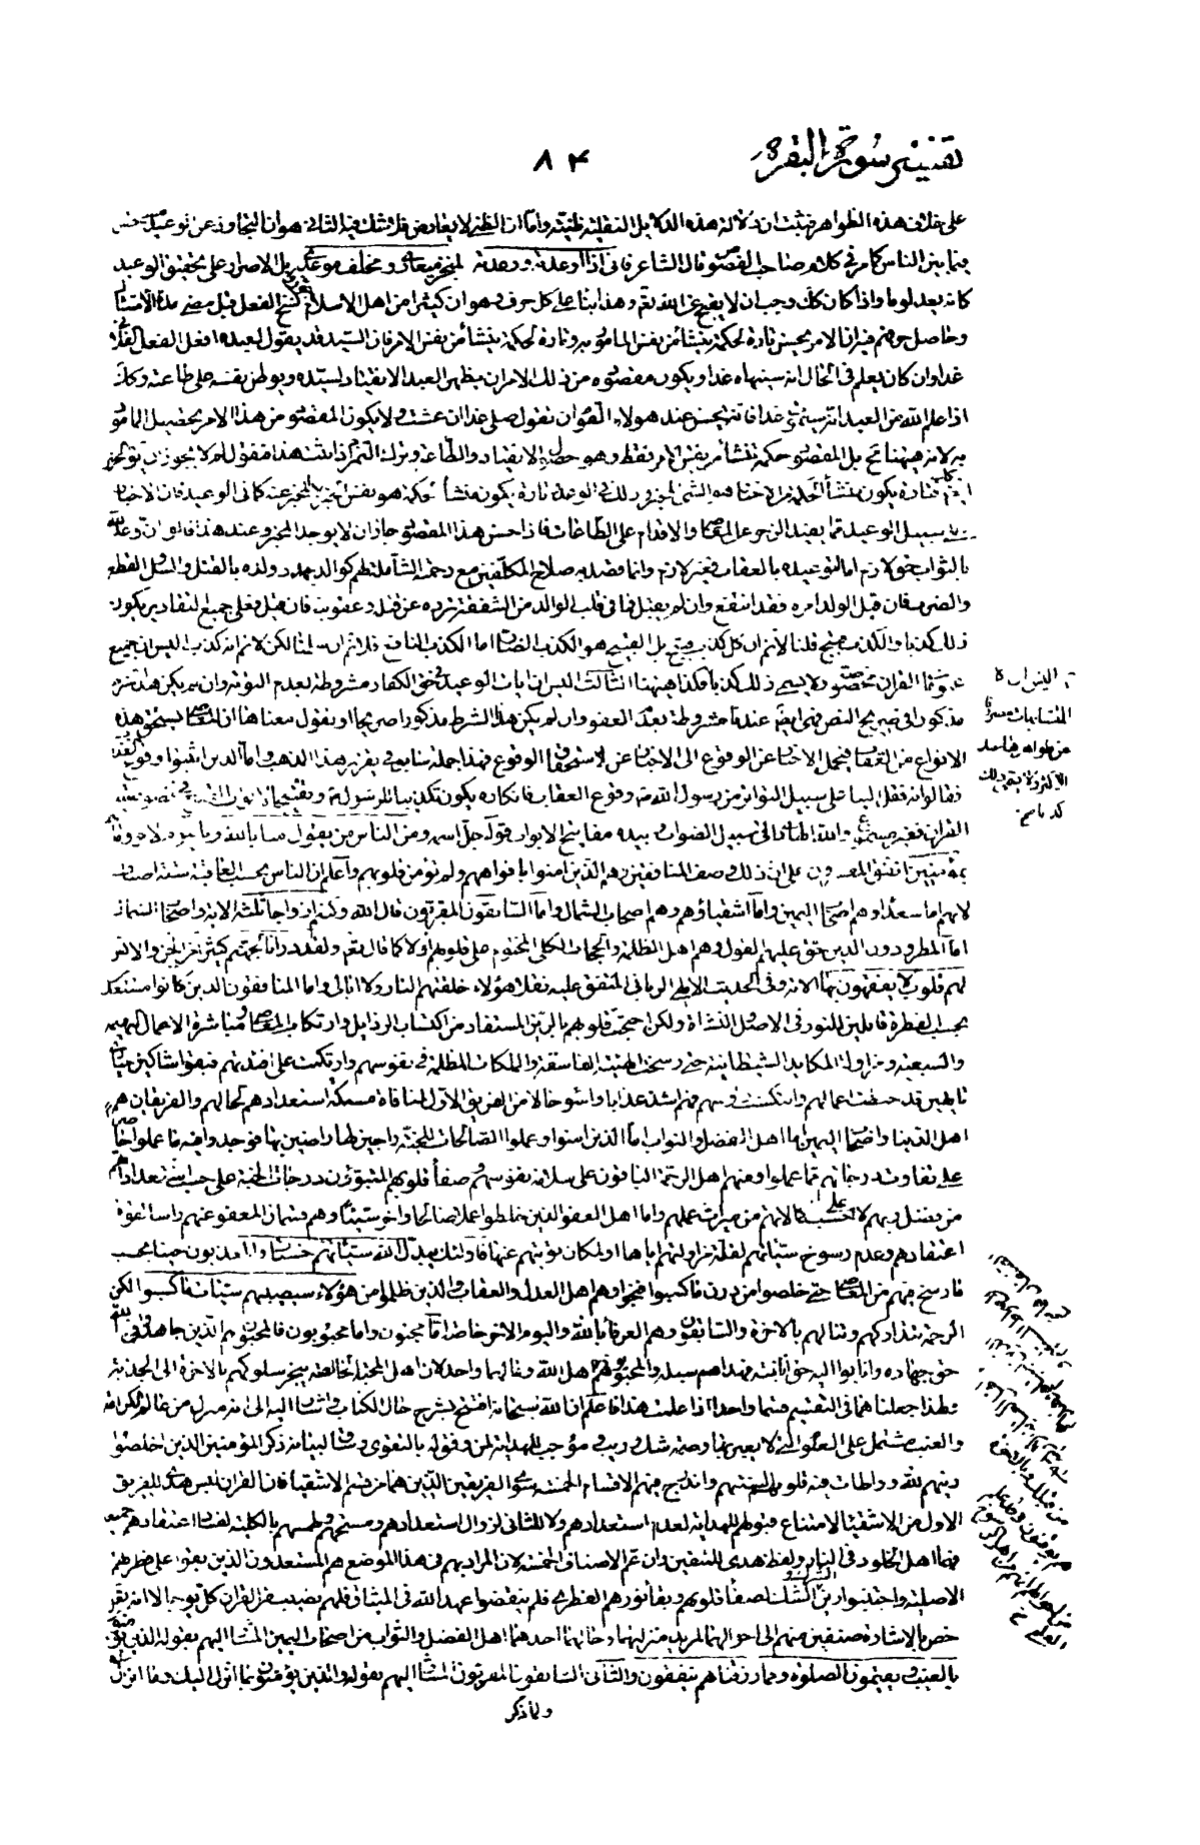 تفسير سورة البقرة
٨۴
على خلاف هذه الظواهر فثبت ان دلالة هذه الدلايل النقلية ظنية واما ان الظنى لا يعارض فلا شك فيه الثانى هو ان التجاوز عن توعيد حسن
فيما بين الناس كما مر فى كلام صاحب الفصوص قال الشاعر فانى اذا اوعدته ووعدته لمخلف ميعادى و بل الاصرار على تحقيق الوعيد
كانه يعد لوما واذا كان كك وجب ان لا يقبح من الله تعم وهذا بناء على كل حرف وهو ان كثيرا من اهل الاسلام نسخ الفعل قبل مضى مدة الامتثال
وحاصل حرفهم فيه ان الامر يحسن تارة لحكمة تنشأ من نفس المامور به وتارة لحكمة تنشأ من نفس الامر فان السيد قد يقول لعبده افعل الفعل الفلانى
غدا وان كان يعلم فى الحال انه سينهاه غدا ويكون مقصوده من ذلك الامر ان يظهر العبد الانقياد لسيده ويوطن نفسه على طاعته وكك
اذا علم الله من العبد انه سيموت غدا فانه يحسن عند هولاء القوم ان يقول صلى غدا ان عشت ولا يكون المقصود من هذا الامر تحصيل المامور
به لانه ههنا مح بل المقصود حكمة تنشأ من نفس الامر فقط وهو حصول الانقياد والطاعة وترك التمرد اذا ثبت هذا فنقول لم لا يجوز ان يق الخبر
ايضم كك فتارة يكون منشأ الحكمة من الاخبار هو الشىء المخبر وذلك فى الوعد وتارة يكون منشأ الحكمة هو نفس الخبر لا المخبر عنه كما فى الوعيد فان الاخبار
على سبيل الوعيد مما يفيد الزجر عن المعاصى والاقدام على الطاعات فاذا حسن هذا المقصود جاز ان لا يوجد المخبر وعند هذا قالوا ان وعد الله
بالثواب حق لازم اما التوعيد بالعقاب فغير لازم وانما قصد به صلاح المكلفين مع رحمته الشاملة لهم كوالد يهدد ولده بالقتل والسمل والقطع
والضرب فان قبل الولد امره فقد انتفع وان لم يقبل فما فى قلب الوالد من الشفقة ترده عن قتله وعقوبته فان قيل فعلى جميع التقادير يكون
ذلك كذبا والكذب قبيح قلنا لا نم ان كل كذب قبيح بل القبيح هو الكذب الضار اما الكذب النافع فلا ثم ان سلمنا لكن لا نم انه كذب اليس ان جميع
عمومات القرآن مخصوصة ولا يسمى ذلك كذبا فكذا ههنا الثالث اليس ان ايات الوعيد فى حق الكفار مشروطة بعدم التوبة وان لم يكن هذا الشرط
مذكورا فى صريح النص فهى ايضم عندنا مشروطة بعدم العفو وان لم يكن هذا الشرط مذكورا صريحا او نقول معناها ان العاصى يستحق هذه
الانواع من العقاب فيحمل الاخبار عن الوقوع الى الاخبار عن استحقاق الوقوع فهذا جملة ما يق فى تقرير هذا المذهب واما الذين اثبتوا وقوع العقاب
فقالوا انه نقل الينا على سبيل التواتر من رسول الله ص وقوع العقاب فانكاره يكون تكذيبا للرسول
القران فغير والله الهادى الى سبيل الصواب وبيده مفاتيح الابواب قوله جل اسمه ومن الناس من يقول امنا بالله وباليوم الاخر وما
هم بمؤمنين اتفق المفسرون على ان ذلك وصف المنافقين وهم الذين امنوا بافواههم ولم تؤمن قلوبهم واعلم ان الناس بحسب العاقبة ستة اصناف
لانهم اما سعداء وهم اصحاب اليمين واما اشقياؤهم وهم اصحاب الشمال واما السابقون المقربون قال الله وكنتم ازواجا ثلثة الاية واصحاب الشمال
اما المطرودون الذين حق عليهم القول وهم اهل الظلمة والحجاب الكلى المختوم على قلوبهم ازلا كما قال تعم ولقد ذرأنا لجهنم كثيرا من الجن والانس
لهم قلوب لا يفقهون بها الاية وفى الحديث الالهى الربانى المتفق عليه نقلا هؤلاء خلقتهم للنار ولا ابالى واما المنافقون الذين كانوا مستعدين
بحسب الفطرة قابلين للنور فى الاصل والنشأة ولكن احتجبت قلوبهم بالرين المستفاد من اكتساب الرذايل وارتكاب المعاصى ومباشرة الاعمال البهيمية
والسبعية ومزاولة المكايد الشيطانية حتى رسخت الهيئة الفاسقة والملكات المظلمة فى نفوسهم وارتكمت على افئدتهم فبقوا شاكين حيارى
تايهين قد حبطت اعمالهم وانتكست رؤسهم فهم اشد عذابا واسوء حالا من الفريق الاول لمنافاة مسكة استعدادهم لحالهم والفريقان هم
اهل الدنيا واصحاب اليمين اما اهل الفضل والثواب اما الذين امنوا وعملوا الصالحات للجنة راجين لها راضين بها فوجدوا فيه ما عملوا حاضرا
على تفاوت درجاتهم مما عملوا ومنهم اهل الرحمة الباقون على سلامة نفوسهم وصفاء قلوبهم المتبوؤن درجات الجنة على حسب استعداداتهم
من فضل ربهم لا على حسب كمالاتهم من ميراث عملهم واما اهل العفو الذين خلطوا عملا صالحا واخر سيئا وهم قسمان المعفو عنهم راسا لقوة
اعتقادهم وعدم رسوخ سيئاتهم لقلة مزاولتهم اياها او لمكان توبتهم عنها فاولئك يبدل الله سيئاتهم حسنات والمعذبون حينا بحسب
ما رسخ فيهم من المعاصى حتى خلصوا من درن ما كسبوا فنجوا وهم اهل العدل والعقاب والذين ظلموا من هؤلاء سيصيبهم سيئات ما كسبوا لكن
الرحمة تتداركهم وتنالهم بالاخرة والسابقون وهم العرفاء بالله واليوم الاخر خاصة اما محبون واما محبوبون فالمحبون هم الذين جاهدوا فى الله
حق جهاده وانابوا اليه حق انابته فهداهم سبله والمحبوبون هم اهل الله ومالهما واحد لان اهل المحبة الخالصة ينجر سلوكهم بالاخرة الى الجذبة
ولهذا جعلناهما فى التقسيم قسما واحدا اذا علمت هذا فاعلم ان الله سبحانه افتتح بشرح حال الكتاب واشار اليه الى انه منزل من عالم الكرامة
والغيب مشتمل على العلوم التى لا يعيريها وصمة شك وريب وموجب للهداية لمن وفق له بالتقوى وساق لبيانه ذكر المؤمنين الذين اخلصوا
دينهم لله وواطات فيه قلوبهم السنتهم واندرج فيهم الاقسام الخمسة سوى الفريقين الذين هما من قسم الاشقياء فان القران ليس هدى للفريق
الاول من الاشقياء لامتناع قبولهم للهداية لعدم استعدادهم ولا للثانى لزوال استعدادهم ومسخهم وطمسهم بالكلية لفساد اعتقادهم جميعا
فهما اهل الخلود فى النار ولفظ هدى للمتقين وان عم الاصناف الخمسة لان المراد بهم فى هذا الموضع هم المستعدون الذين بقوا على فطرتهم
الاصلية واجتنبوا رين الشرك والشك لصفاء قلوبهم وبقاء نورهم الفطرى فلم ينقضوا عهد الله فى الميثاق فلهم نصيب من القران كل بوجه الا انه تعم
خص بالاشارة صنفين منهم الى احوالهما لمزيد منزلتهما وحالهما احدهما اهل الفضل والثواب من اصحاب اليمين المشار اليهم بقوله الذين يؤمنون
بالغيب ويقيمون الصلوة ومما رزقناهم ينفقون والثانى السابقون المقربون المشار اليهم بقوله والذين يؤمنون بما انزل اليك وما انزل
ولما ذكر
من قبلك وبالاخرة
هم يوقنون